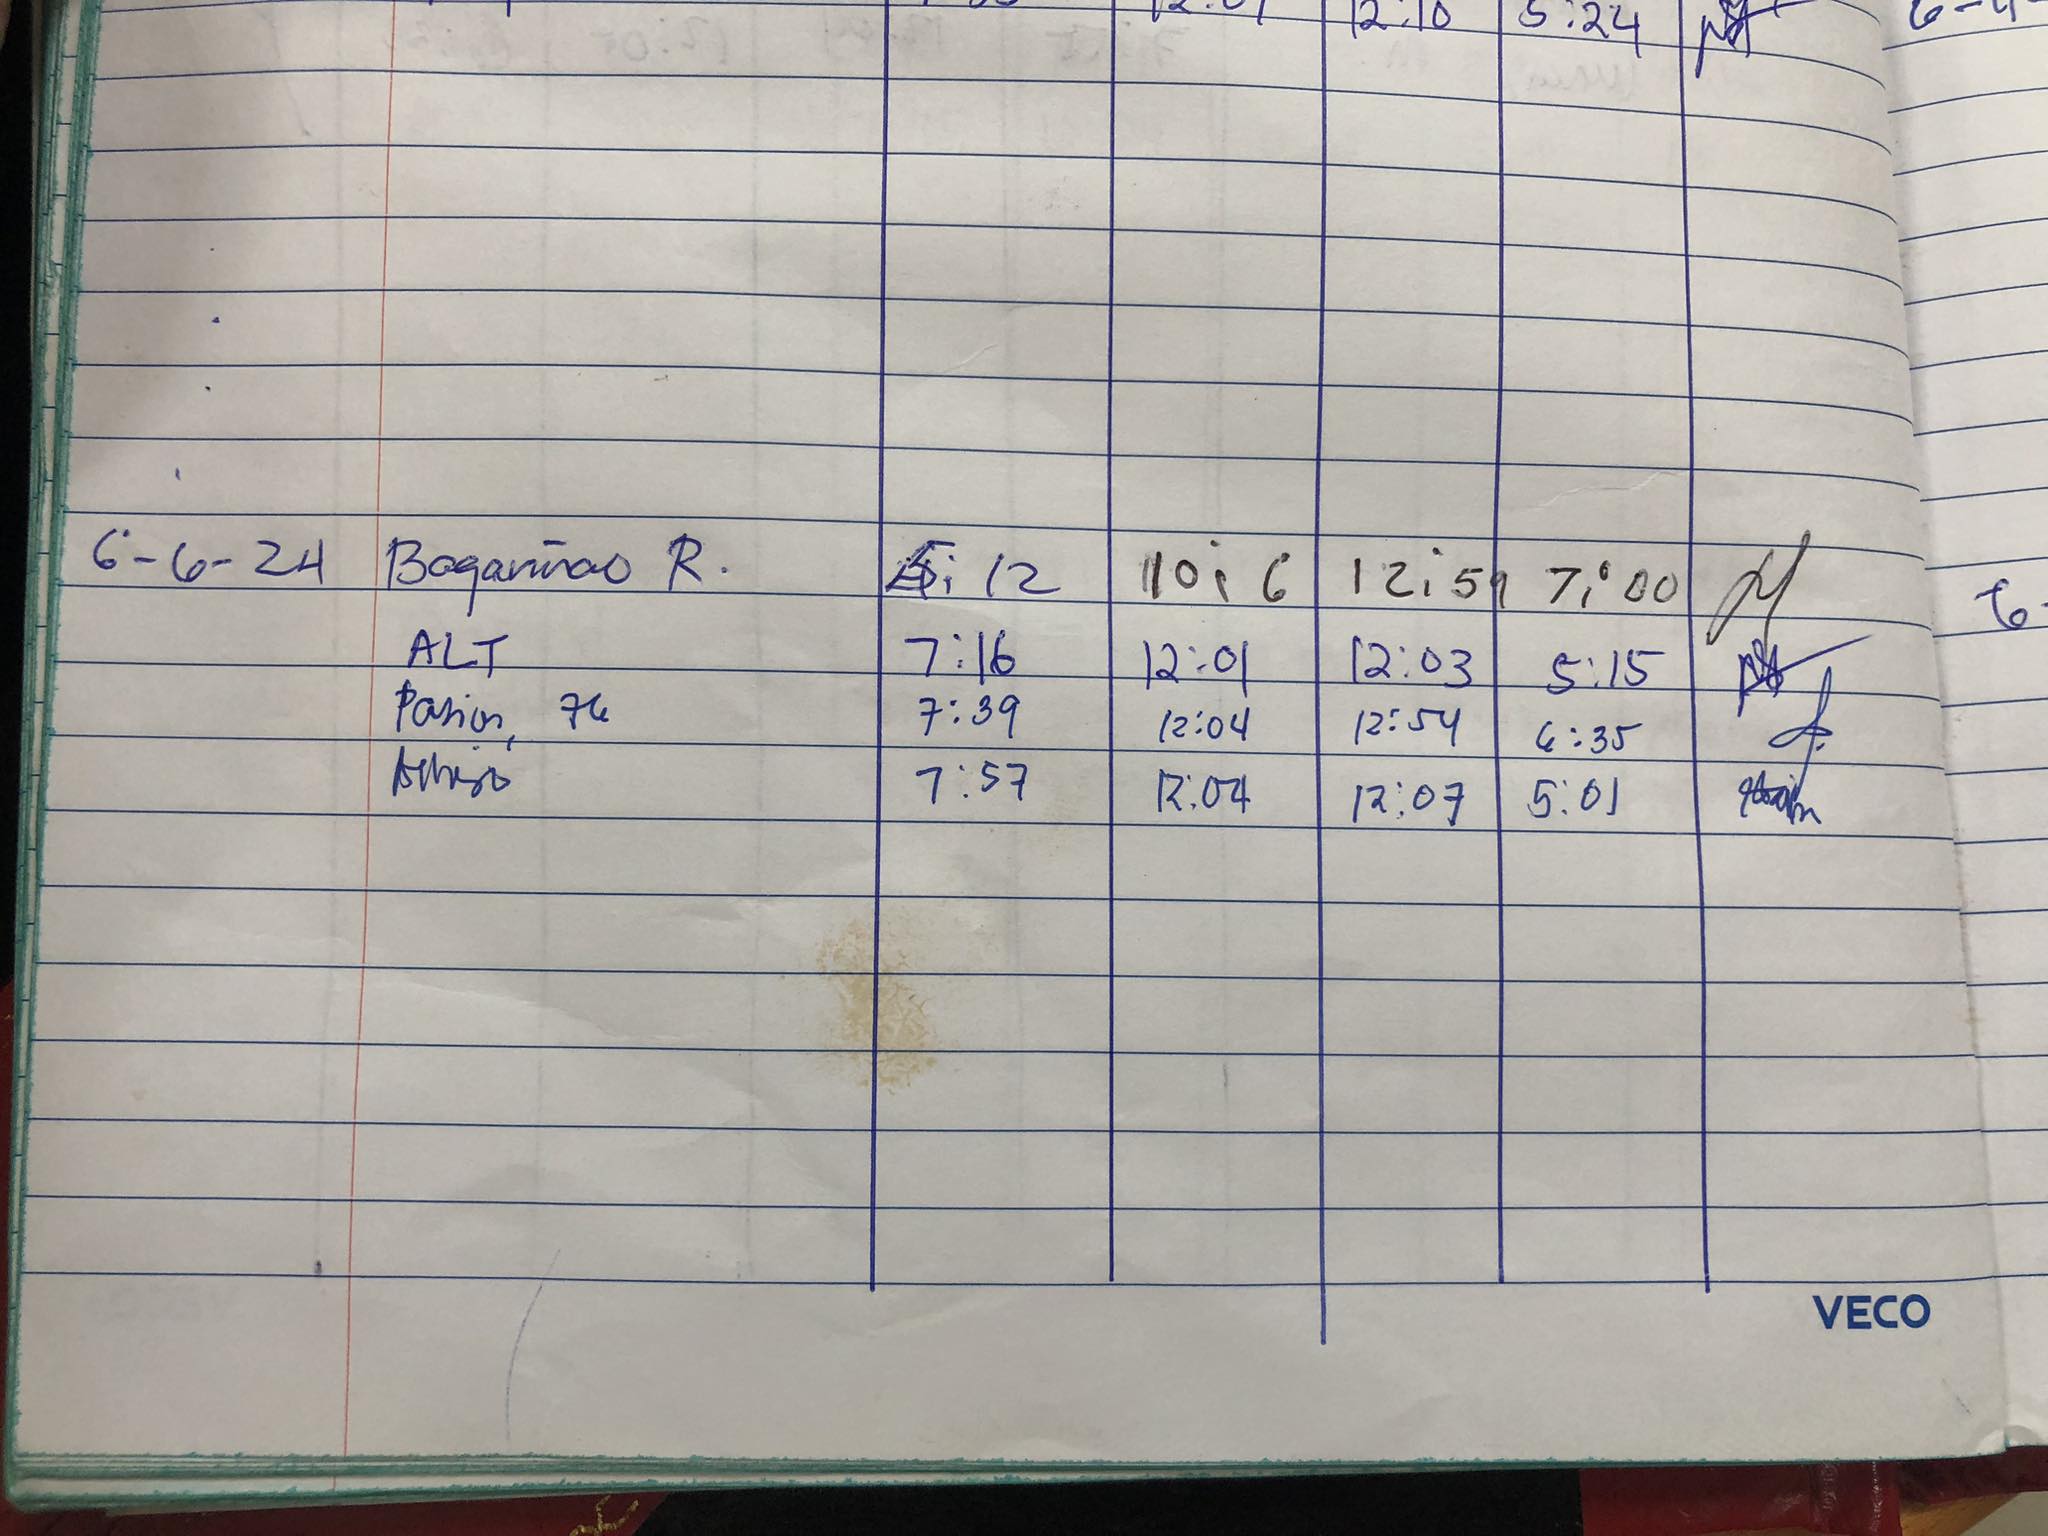 12:01 12:10 5:24 6-4-
6-6-24 Bagarinao R. 5:12 10:6 12:59 7:00
ALT 7:16 12:01 12:03 5:15
7:39 12:04 12:54 6:35
7:57 12:04 12:07 5:01
VECO